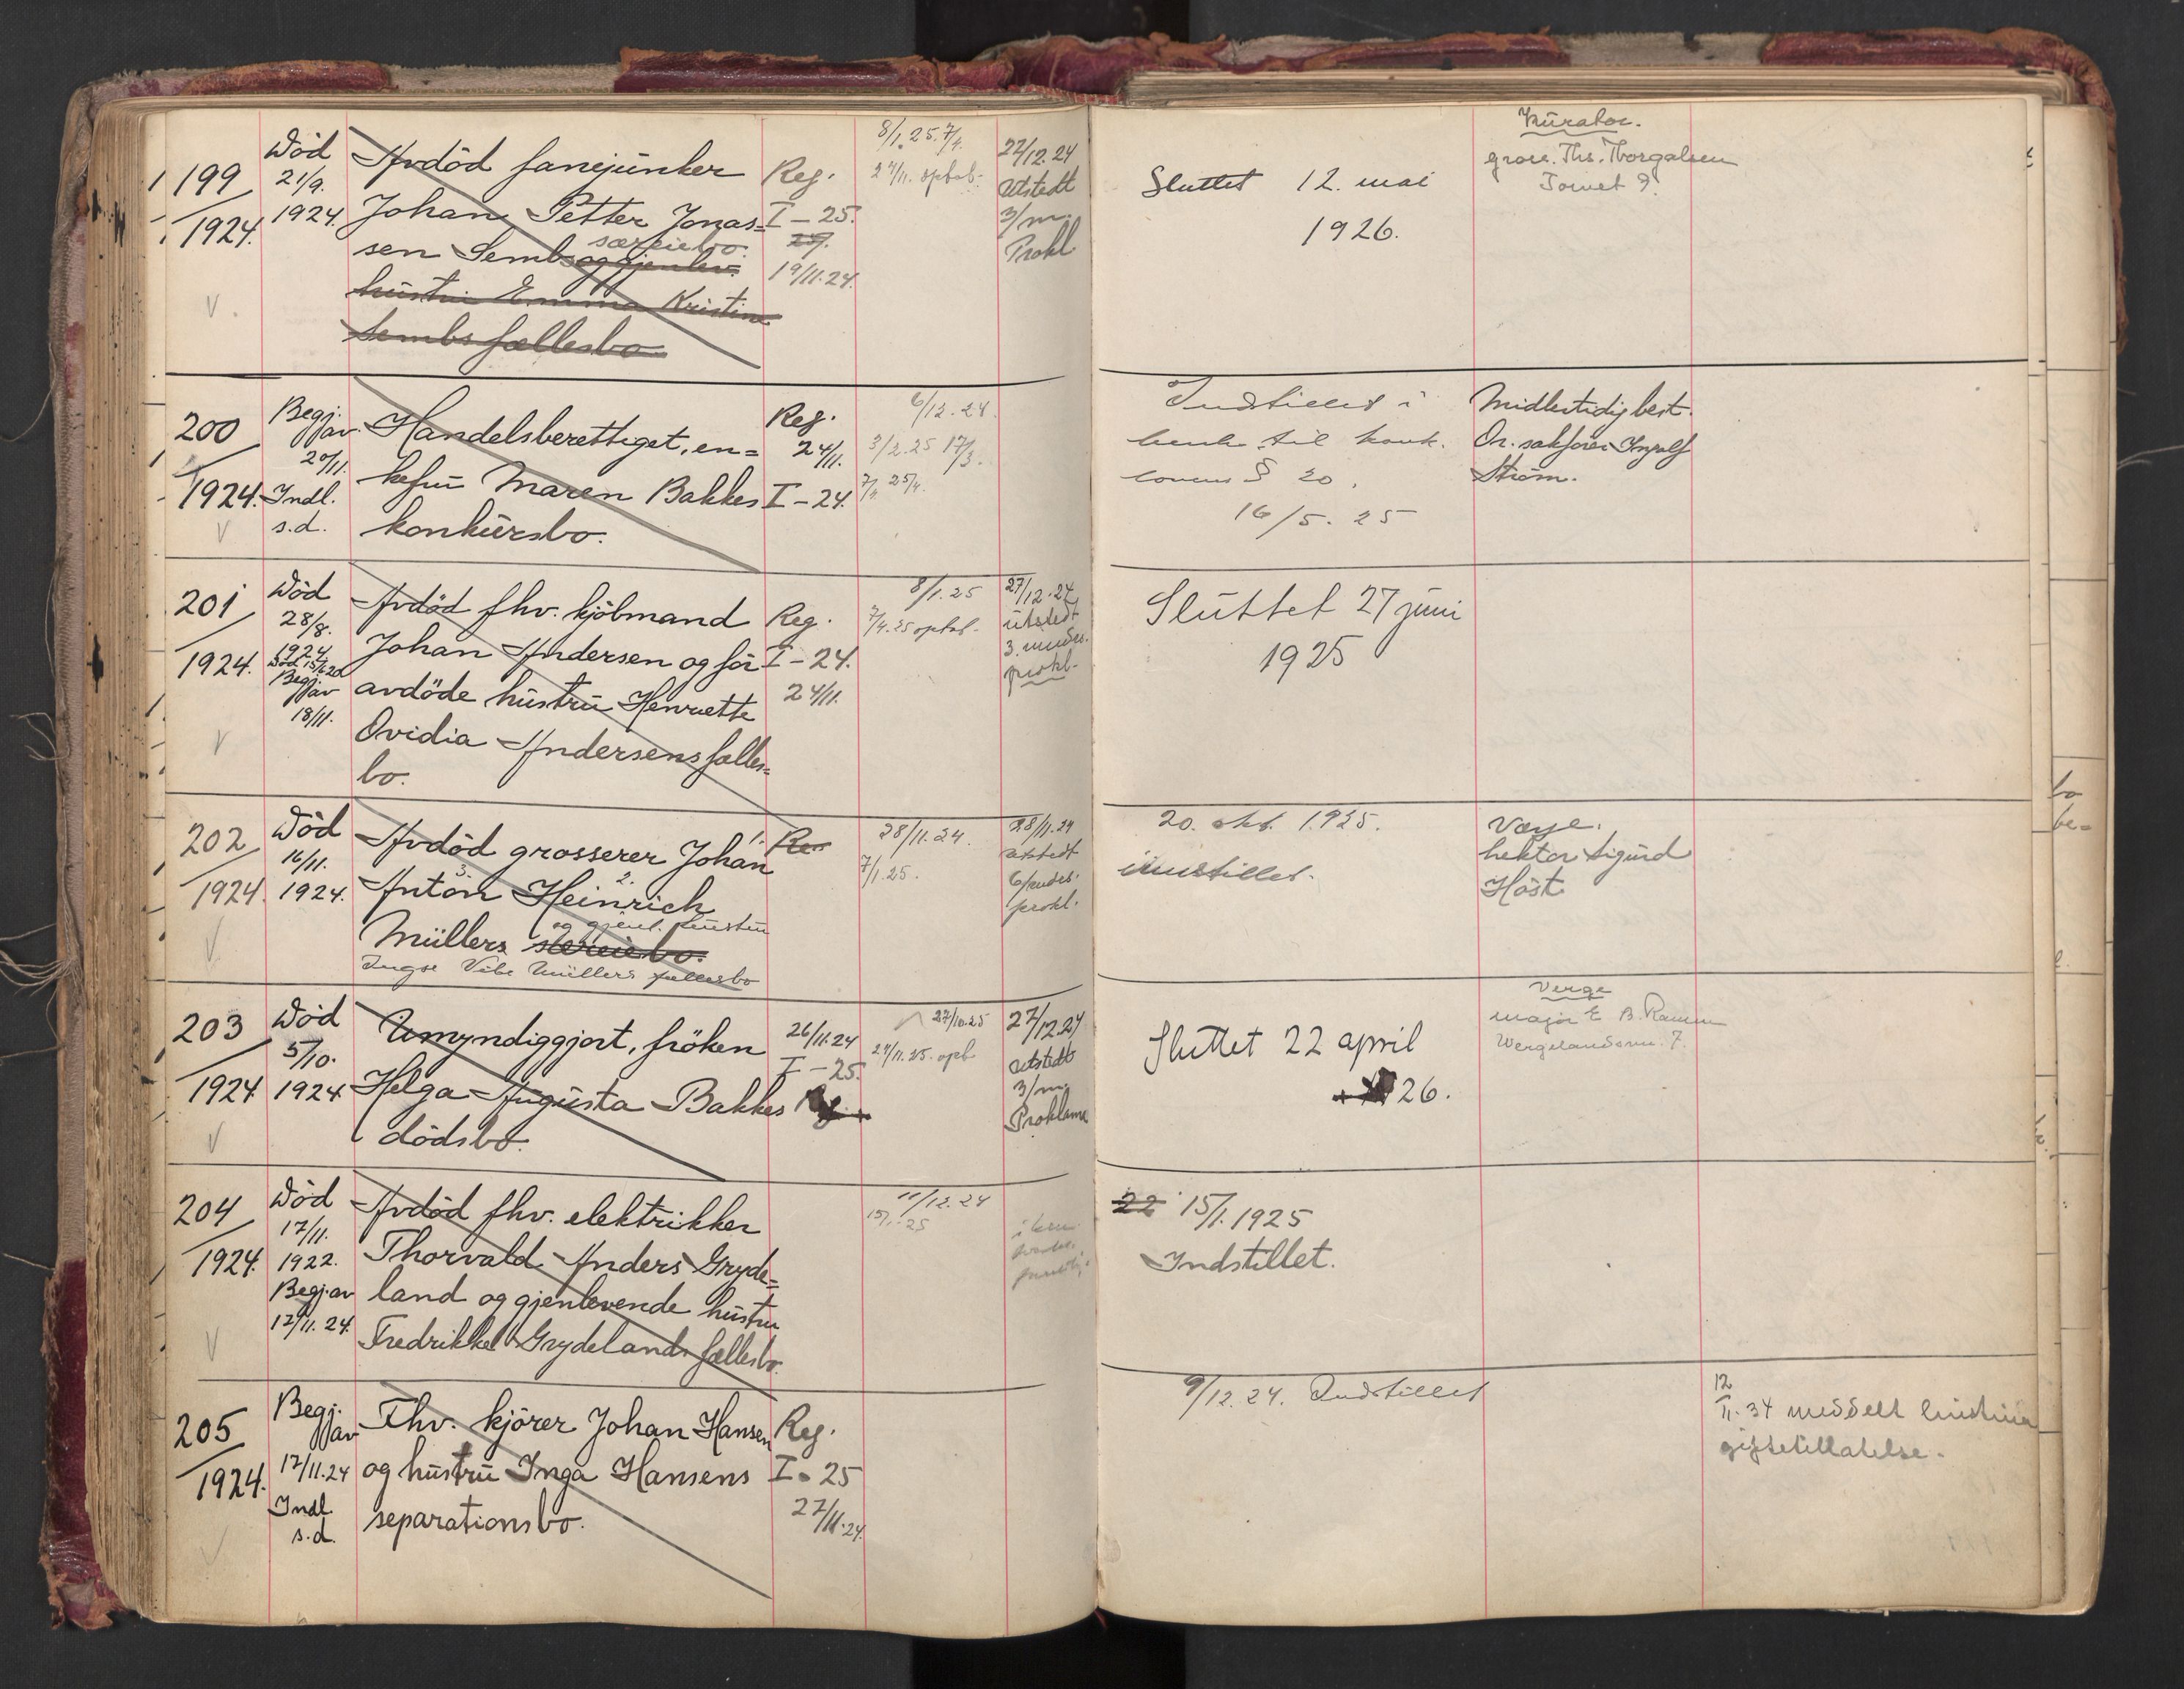 199
1924.
Död
21/9.
1924.
Avdöd fanejunker
Johan Petter Jonas=
sen Sembs og gjenlev.
særeiebo.
hustru Emma Kristine
Sembs fællesbo
Reg.
I - 25.
19/11.24.
8/1.25. 7/4.
27/12.24
utstedt
3/m.
Prokl
Sluttet 12. mai
1926.
Kurator.
gross. Ths. Thorgalsen
Torvet 9.
200
1924.
Begj.
av
20/11.
Indl.
s.d.
Handelsberettiget, en=
kefru Maren Bakkes
konkursbo.
Reg.
24/11.
I - 24.
6/12.24.
3/2.25 17/3.
7/4. 25/4.
Indstillet i
henh. til konk.
lovens § 20.
16/5.25
Midlertidig best.
Or. sakförer Ingolf
Ström.
201
1924.
Död
28/8.
1924.
Begj.
av
18/11.
Avdöd fhv. kjöbmand
Johan Andersen og för
avdöde hustru Henriette
Ovidia Andersens fælles=
bo.
Reg.
I - 24.
24/11.
8/1.25
7/4.25
27/12.24
utstedt
3. mnders.
prokl.
Sluttet 27 juni
1925
202
1924.
Död
16/11.
1924.
Avdöd grosserer Johan
Anton Heinrich
og gjenl. hustru
Müllers særeiebo.
Inger Vibe Müllers fællesbo
Reg
28/11.24.
7/1.25.
28/11.24
utstedt
prokl.
20. okt. 1925.
innstillet.
Værge.
Sigurd
Höst
203
1924
Död
5/10.
1924
Umyndiggjort, fröken
Helga Augusta Bakkes
dödsbo.
26/11.24
I - 25.
Reg
27/10.25
24/11.25.
27/12.24
utstedt
3/m.
Proklama
Sluttet 22 april
26.
Verge
major E. B. Ramm
Wergelandsvn. 7.
204
1924.
Död
17/11.
1922.
Begj. av
17/11.24.
Avdöd fhv. elektrikker
Thorvald Anders Gryde=
land og gjenlevende hustru
Fredrikke Grydelands fællesbo.
11/12.24
15/1.25
22 15/1.1925
Indstillet.
205
1924.
Begj.
av
17/11.24
Indl.
s.d.
Fhv. kjörer Johan Hansen
og hustru Inga Hansens
separationsbo.
Reg.
I - 25
27/11.24.
9/12.24. Indstillet
12/11.34 meddelt hustruen
giftetillatelse.